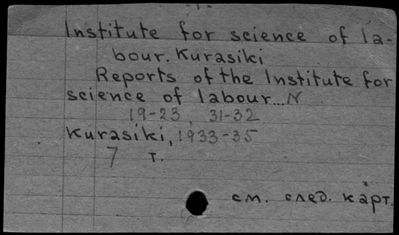 Institute for science of la-
bour. Kurasiki
Reports of the Institute for
science of labour... N
19-23, 31-32
Kurasiki, 1933-35
7 т.
см. след. карт.